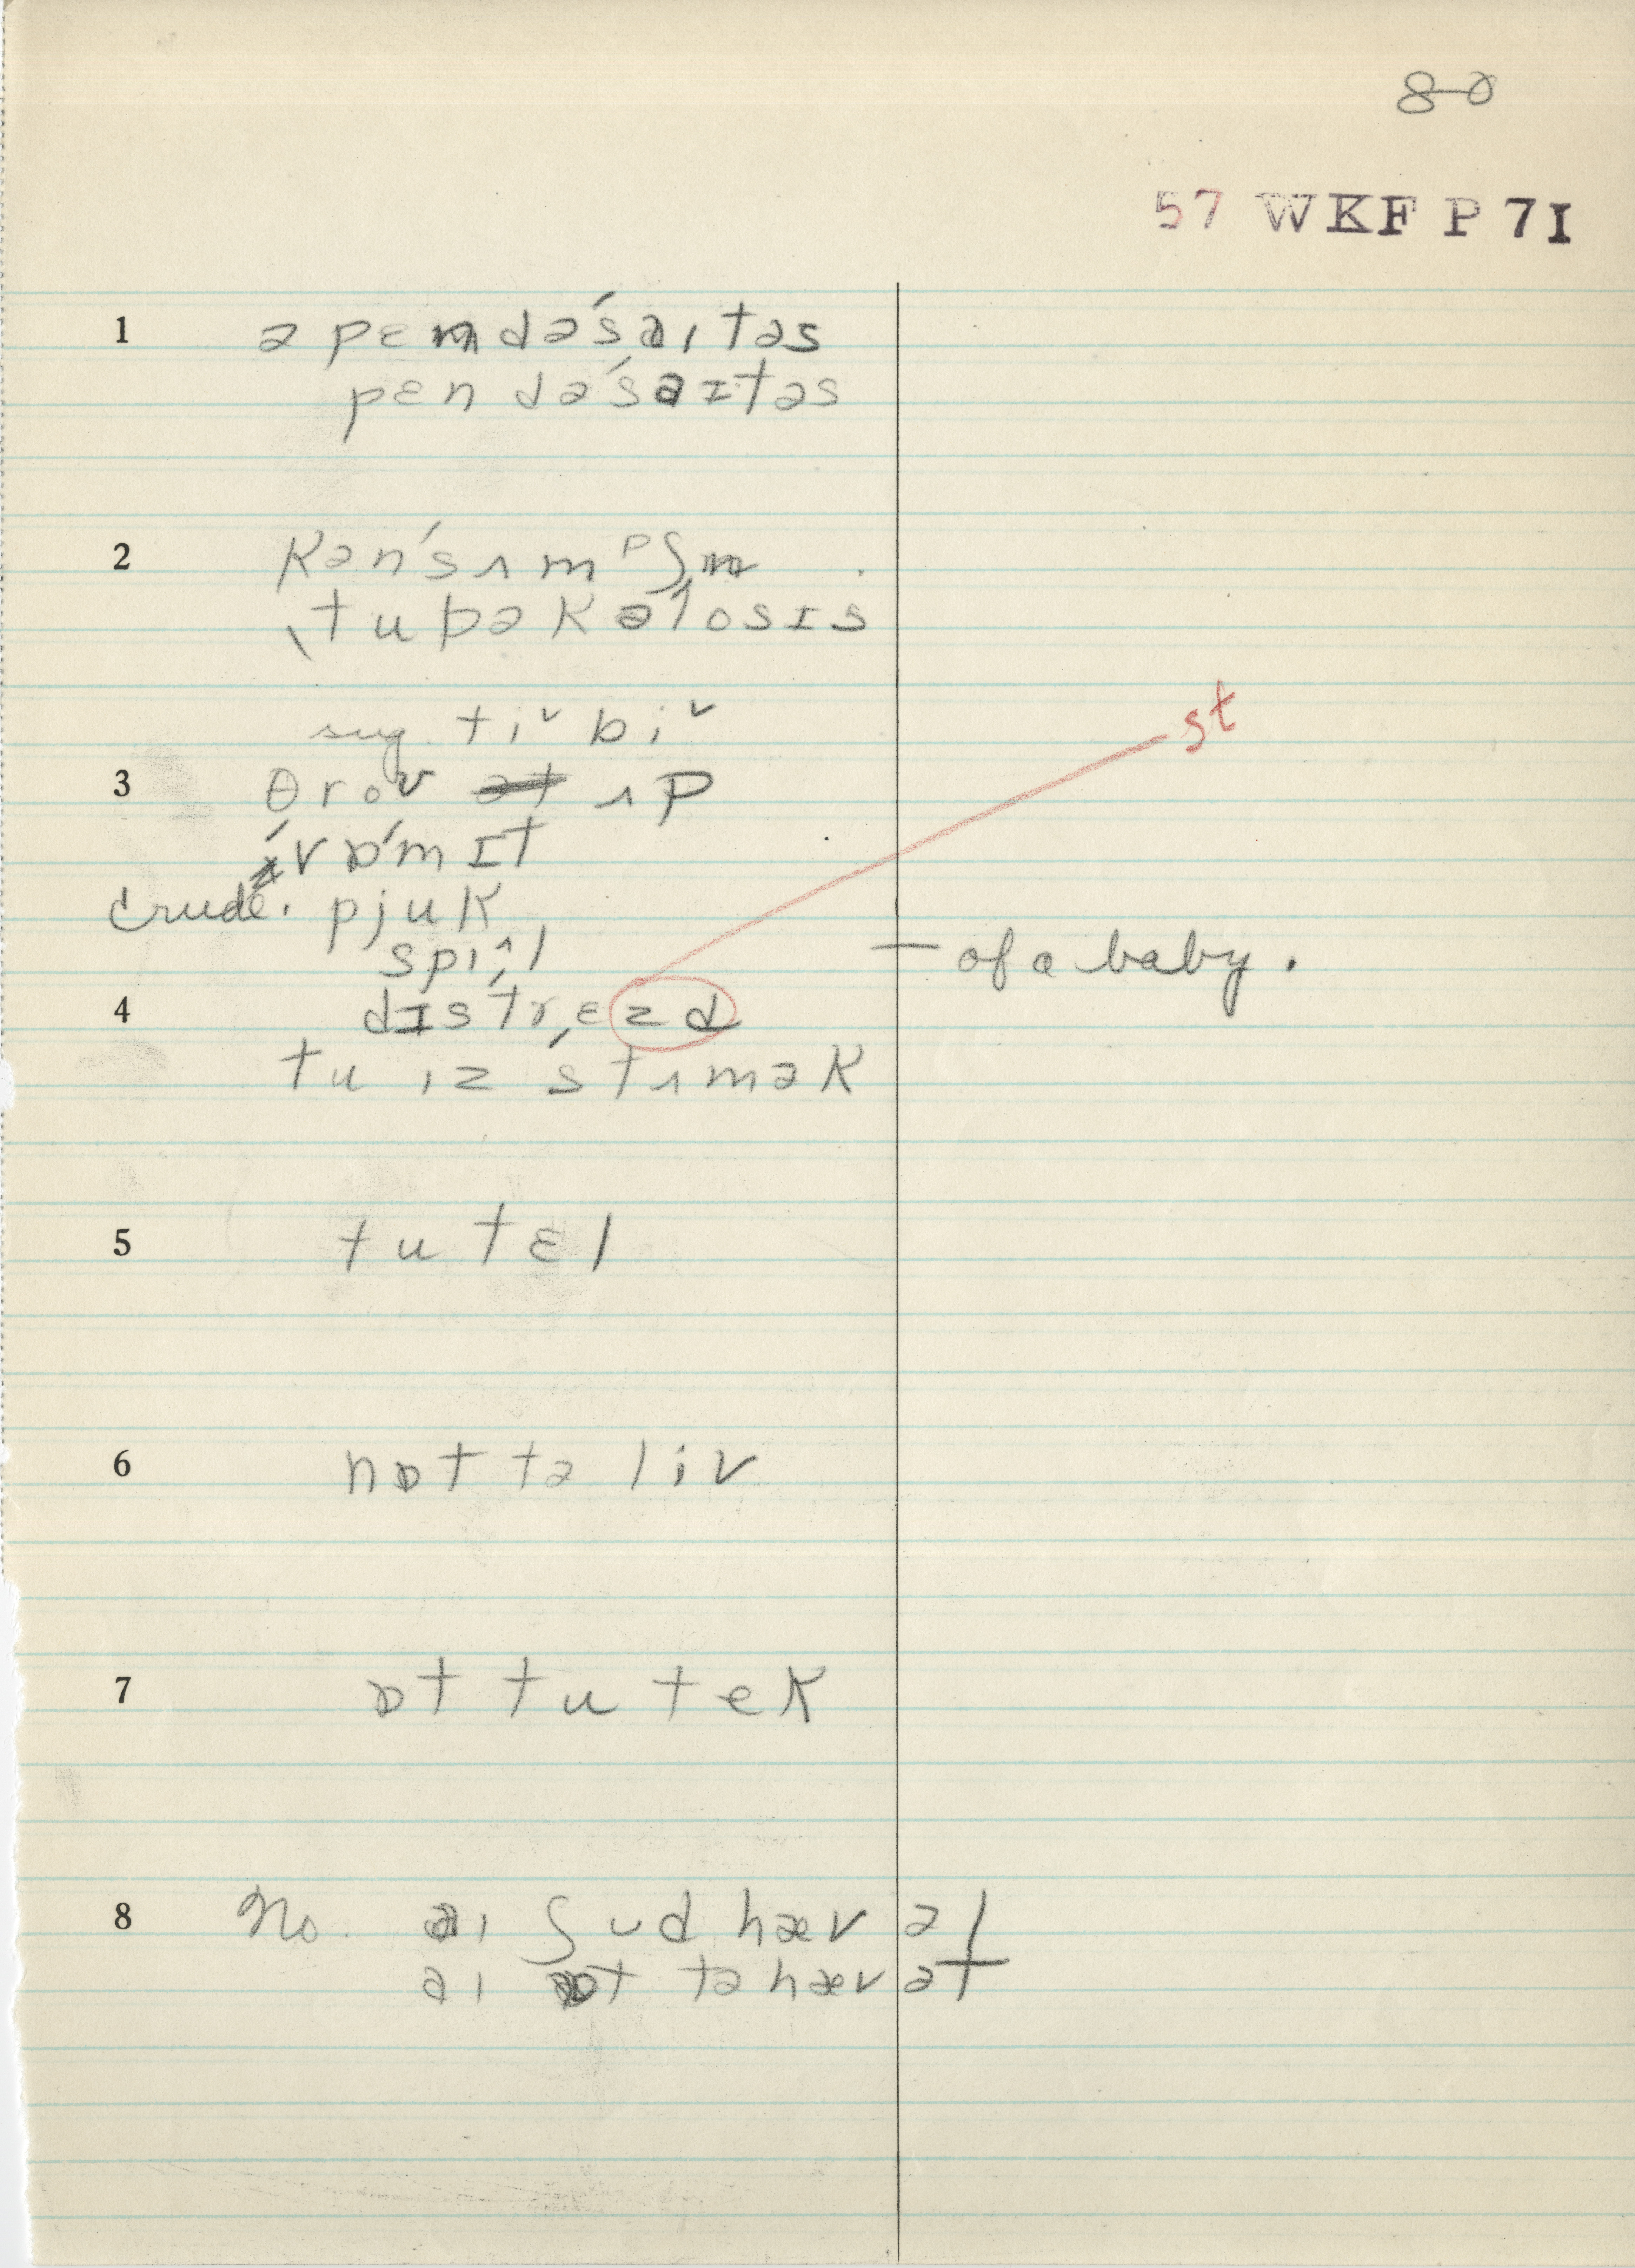 80
57 WKF P 7I
1 ə pɛndə'saɪtəs
pɛndə'saɪtəs
2 kən'sʌmᵖʃn
ˌtubəkə'losɪs
sug. tiᵛ biᵛ
3 θroʊ ʌp
'vɒmɪt
crude. pjuk
spɪʌl — of a baby.
4 dɪstrɛzd st
tu ɪz 'stʌmək
5 tu tɛl
6 nɒt tə liv
7 ɒt tu tek
8 No. aɪ ʃud hæv ət
aɪ ɒt tə hæv ət